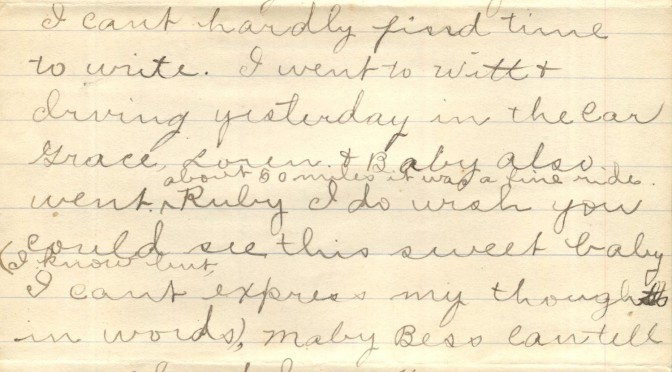 I cant hardly find time
to write. I went to Witt &
driving yesterday in the car
Grace, Loren & Baby also
about 60 miles it was a fine ride.
went. Ruby I do wish you
could see this sweet baby
(I know but
I cant express my thoughts
in words), maby Bess can tell